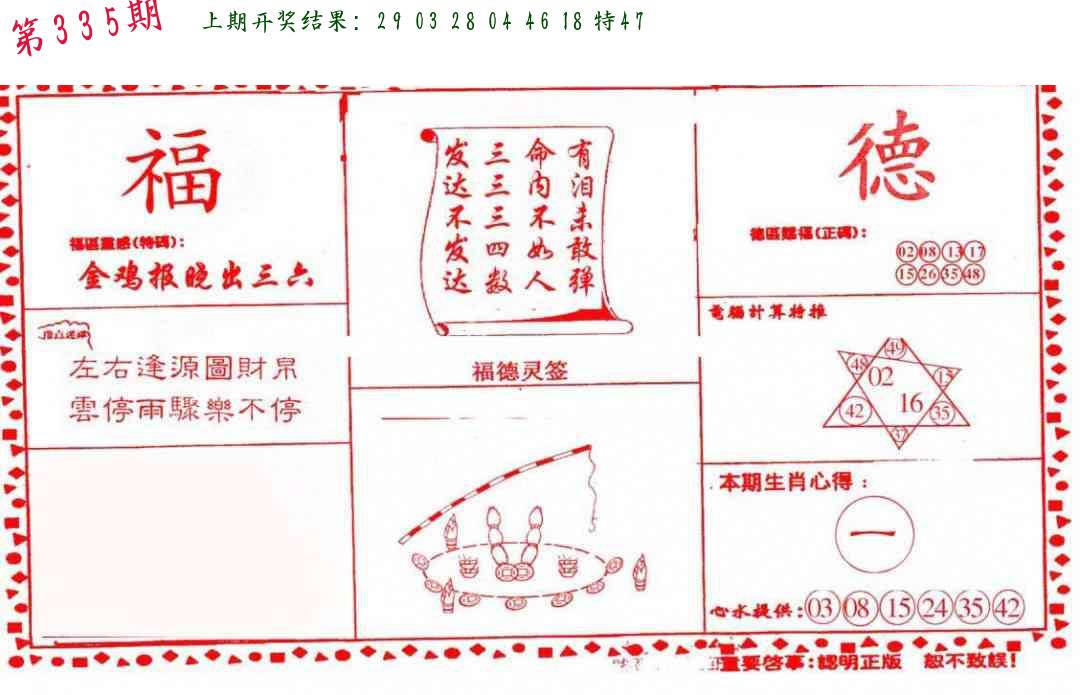 第335期
上期开奖结果: 29 03 28 04 46 18 特47
福
福區靈感(特碼):
金鸡报晓出三六
左右逢源圖財帛
雲停雨驟樂不停
有泪未敢弹
命内不如人
三三三四数
发达不发达
福德灵签
德
德區賜福(正碼):
02 08 13 17
15 26 35 48
電腦計算特推
49
48 02 15
42 16 35
37
本期生肖心得:
一
心水提供:03 08 15 24 35 42
重要啓事:認明正版 恕不致誤!